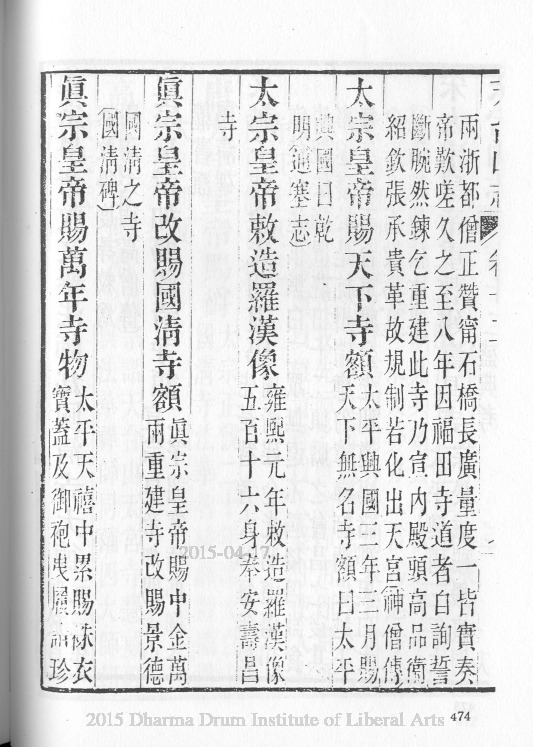 兩浙都僧正贊甯石橋長廣量度一皆實奏
帝歎嗟久之至八年因福田寺道者自詢誓
斷腕然鍊乞重建此寺乃宣内殿頭高品衛
紹欽張承貴革故規制若化出天宮(神僧傳
太宗皇帝賜天下寺額太平興國三年三月賜
天下無名寺額曰太平
興國曰乾
明(通塞志)
太宗皇帝敕造羅漢像雍熙元年敕造羅漢像
五百十六身奉安壽昌
寺
眞宗皇帝改賜國清寺額眞宗皇帝賜中金萬
兩重建寺改賜景德
國清之寺
(國清碑)
眞宗皇帝賜萬年寺物太平天禧中累賜袾衣
寶蓋及御袍曳履珍
2015-04-17
2015 Dharma Drum Institute of Liberal Arts
474